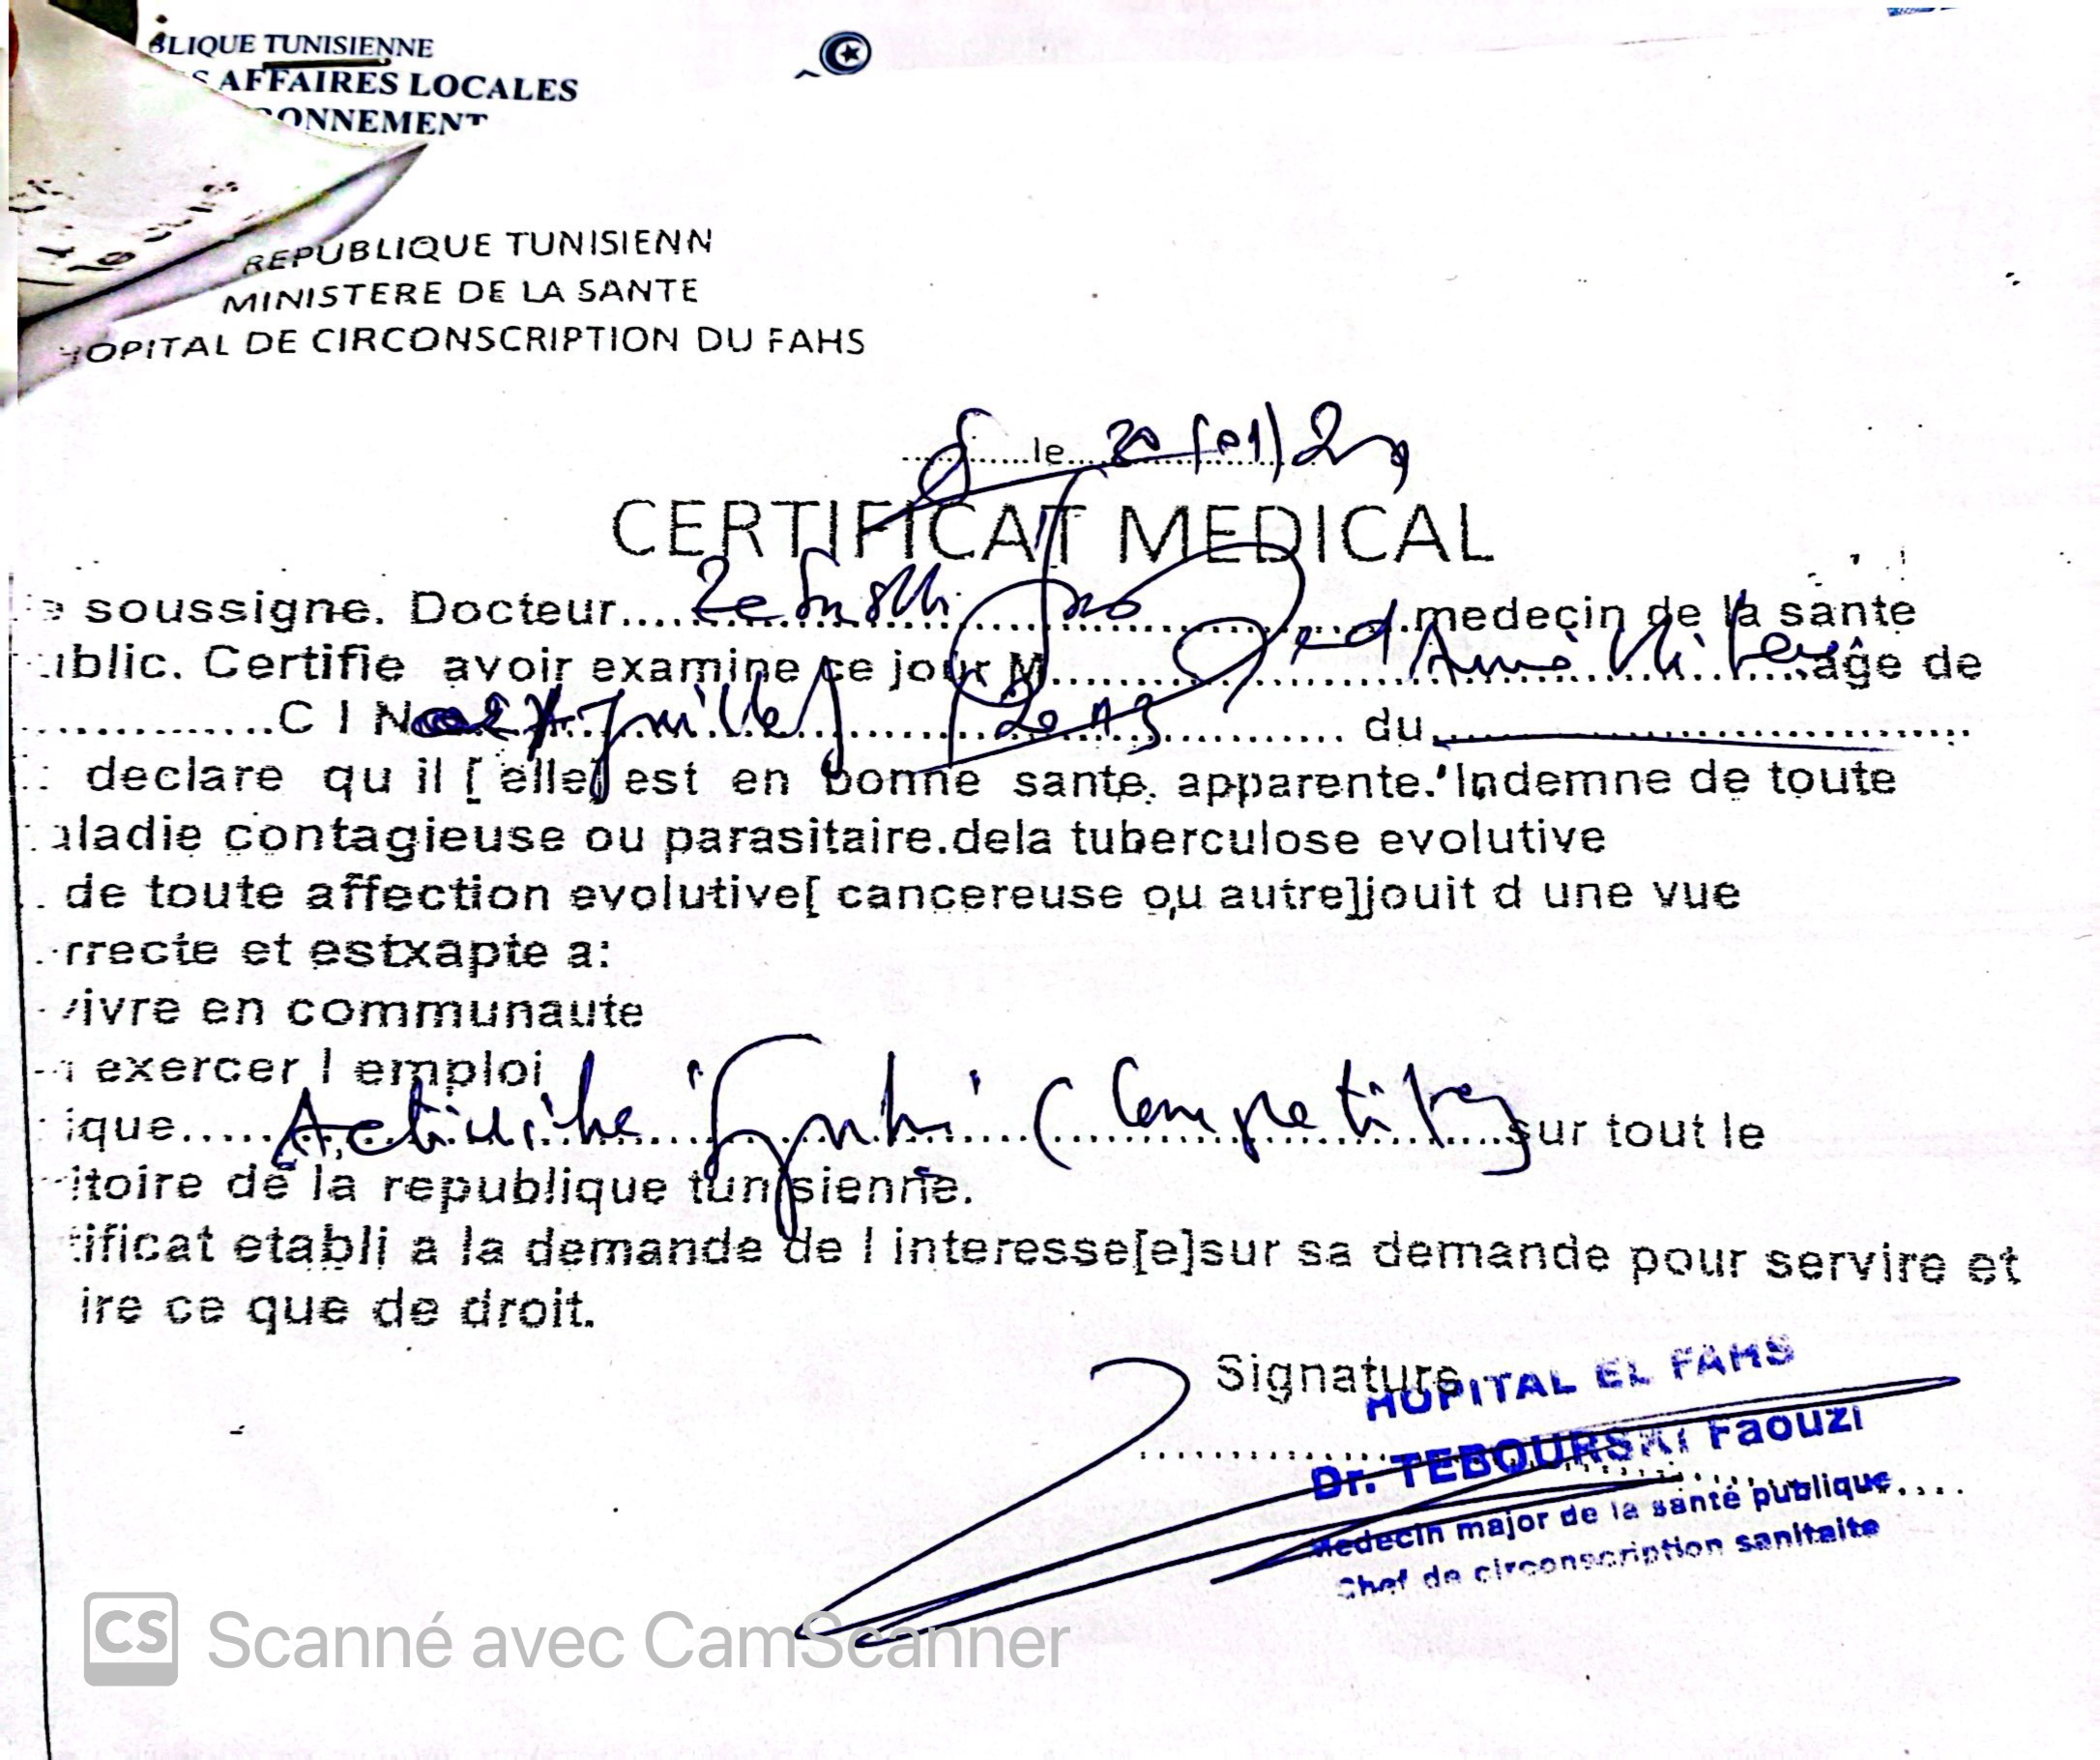 BLIQUE TUNISIENNE
AFFAIRES LOCALES
ONNEMENT
REPUBLIQUE TUNISIENN
MINISTERE DE LA SANTE
HOPITAL DE CIRCONSCRIPTION DU FAHS
le 20
CERTIFICAT MEDICAL
soussigne. Docteur medecin de la sante
ublic. Certifie avoir examine ce jour M age de
C I N Juillet 2013 du
declare qu il [ elle] est en bonne sante. apparente. Indemne de toute
aladie contagieuse ou parasitaire.dela tuberculose evolutive
de toute affection evolutive[ cancereuse ou autre]jouit d une vue
rrecte et estxapte a:
vivre en communaute
exercer l emploi
ique (Competitive) sur tout le
itoire de la republique tunisienne.
tificat etabli a la demande de l interesse[e]sur sa demande pour servire et
ire ce que de droit.
Signature
HOPITAL EL FAHS
Dr. TEBOURSKI Faouzi
Medecin major de la santé publique
Chef de circonscription sanitaite
CS Scanné avec CamScanner